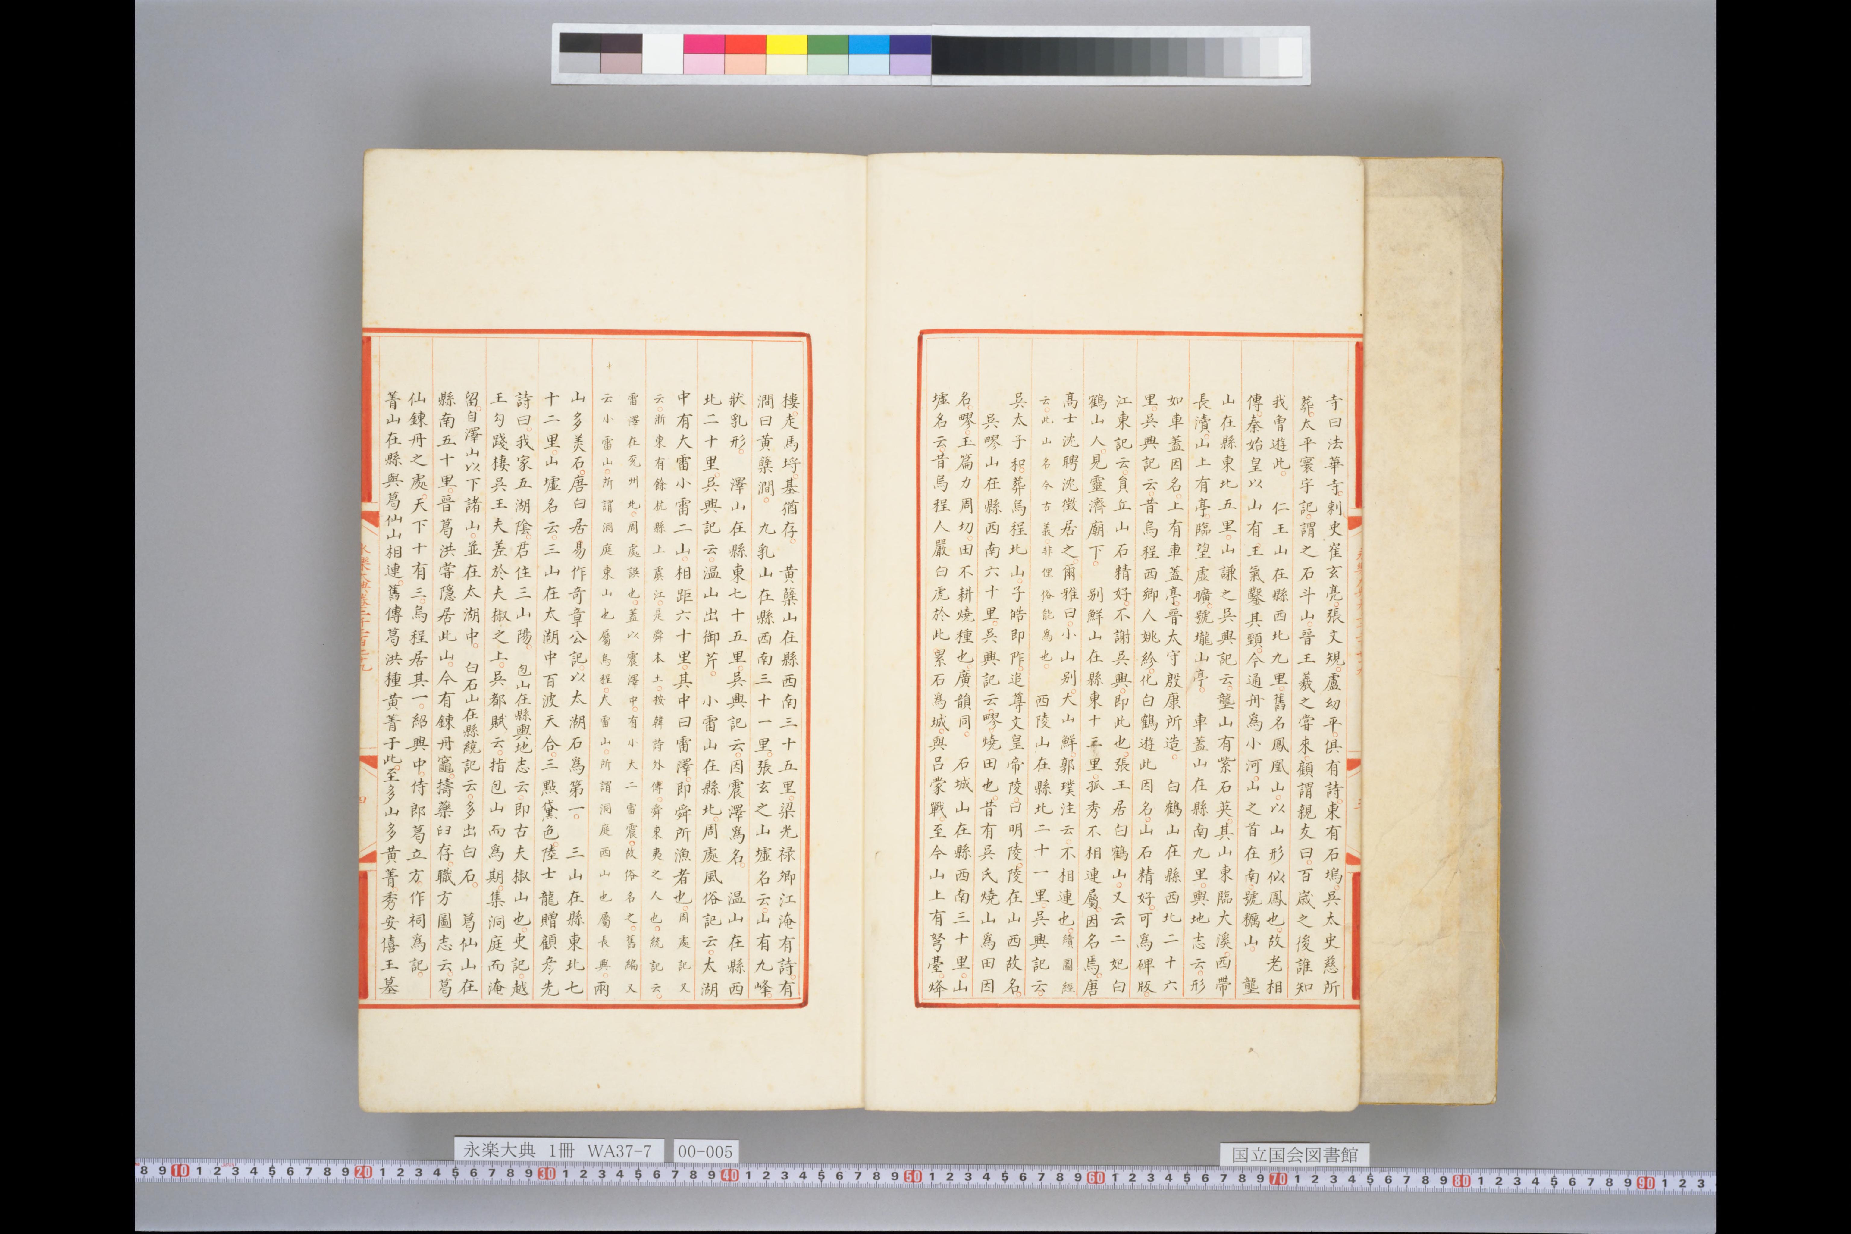 寺曰法華寺刺史崔玄亮張文規盧幼平俱有詩東有石塢吳太史慈所
葬太平寰宇記謂之石斗山晉王羲之嘗來顧謂親友曰百歲之後誰知
我曾遊此 仁王山在縣西北九里舊名鳳凰山以山形似鳳也故老相
傳秦始皇以山有王氣鑿其頸今通舟爲小河山之首在南號犤山 壟
山在縣東北五里山謙之吳興記云壟山有紫石英其山東臨大溪西帶
長瀆山上有亭臨望虛曠號壠山亭 車蓋山在縣南九里輿地志云形
如車蓋因名上有車蓋亭晉太守殷康所造 白鶴山在縣西北二十六
里吳興記云昔烏程西鄉人姚紾化白鶴遊此因名山石精好可爲碑版
江東記云貟丘山石精好不謝吳興即此也張王居白鶴山又云二妃白
鶴山人見靈濟廟下 别鮮山在縣東十三里孤秀不相連屬因名焉唐
高士沈聘沈徵居之爾雅曰小山别大山鮮郭璞注云不相連也續圖經
云此山名今古義非俚俗能爲也 西陵山在縣北二十一里吳興記云
吳太子和葬烏程北山子皓即阼追尊文皇帝陵曰明陵陵在山西故名
吳嵺山在縣西南六十里吳興記云嵺燒田也昔有吳氏燒山爲田因
名嵺玉篇力周切田不耕燒種也廣韻同 石城山在縣西南三十里山
墟名云昔烏程人嚴白虎於此累石爲城與呂蒙戰至今山上有弩臺烽
樓走馬埒基猶存 黃蘗山在縣西南三十五里梁光祿卿江淹有詩有
澗曰黃蘗澗 九乳山在縣西南三十一里張玄之山墟名云山有九峰
狀乳形 澤山在縣東七十五里吳興記云因震澤爲名 温山在縣西
北二十里吳興記云温山出御荈 小雷山在縣北周處風俗記云太湖
中有大雷小雷二山相距六十里其中曰雷澤即舜所漁者也周處記又
云浙東有餘杭縣上虞江是舜本土按韓詩外傳舜東夷之人也統記云
雷澤在兖州北周處誤也蓋以震澤中有小大二雷震故俗名之舊編又
云小雷山所謂洞庭東山也屬烏程大雷山所謂洞庭西山也屬長興兩
山多美石唐白居易作奇章公記以太湖石爲第一 三山在縣東北七
十二里山墟名云三山在太湖中百波天合三點黛色陸士龍贈顧彦先
詩曰我家五湖陰君住三山陽 包山在縣輿地志云即古夫椒山也史記越
王勾踐棲吳王夫差於夫椒之上吳都賦云指包山而爲期集洞庭而淹
留自澤山以下諸山並在太湖中 白石山在縣統記云多出白石 葛仙山在
縣南五十里晉葛洪嘗隱居此山今有鍊丹竈擣藥臼存職方圖志云葛
仙鍊丹之處天下十有三烏程居其一紹興中侍郎葛立方作祠爲記
菁山在縣與葛仙山相連舊傳葛洪種黃菁于此至多山多黃菁秀安僖王墓
永楽大典 1冊 WA37-7 00-005
国立国会図書館